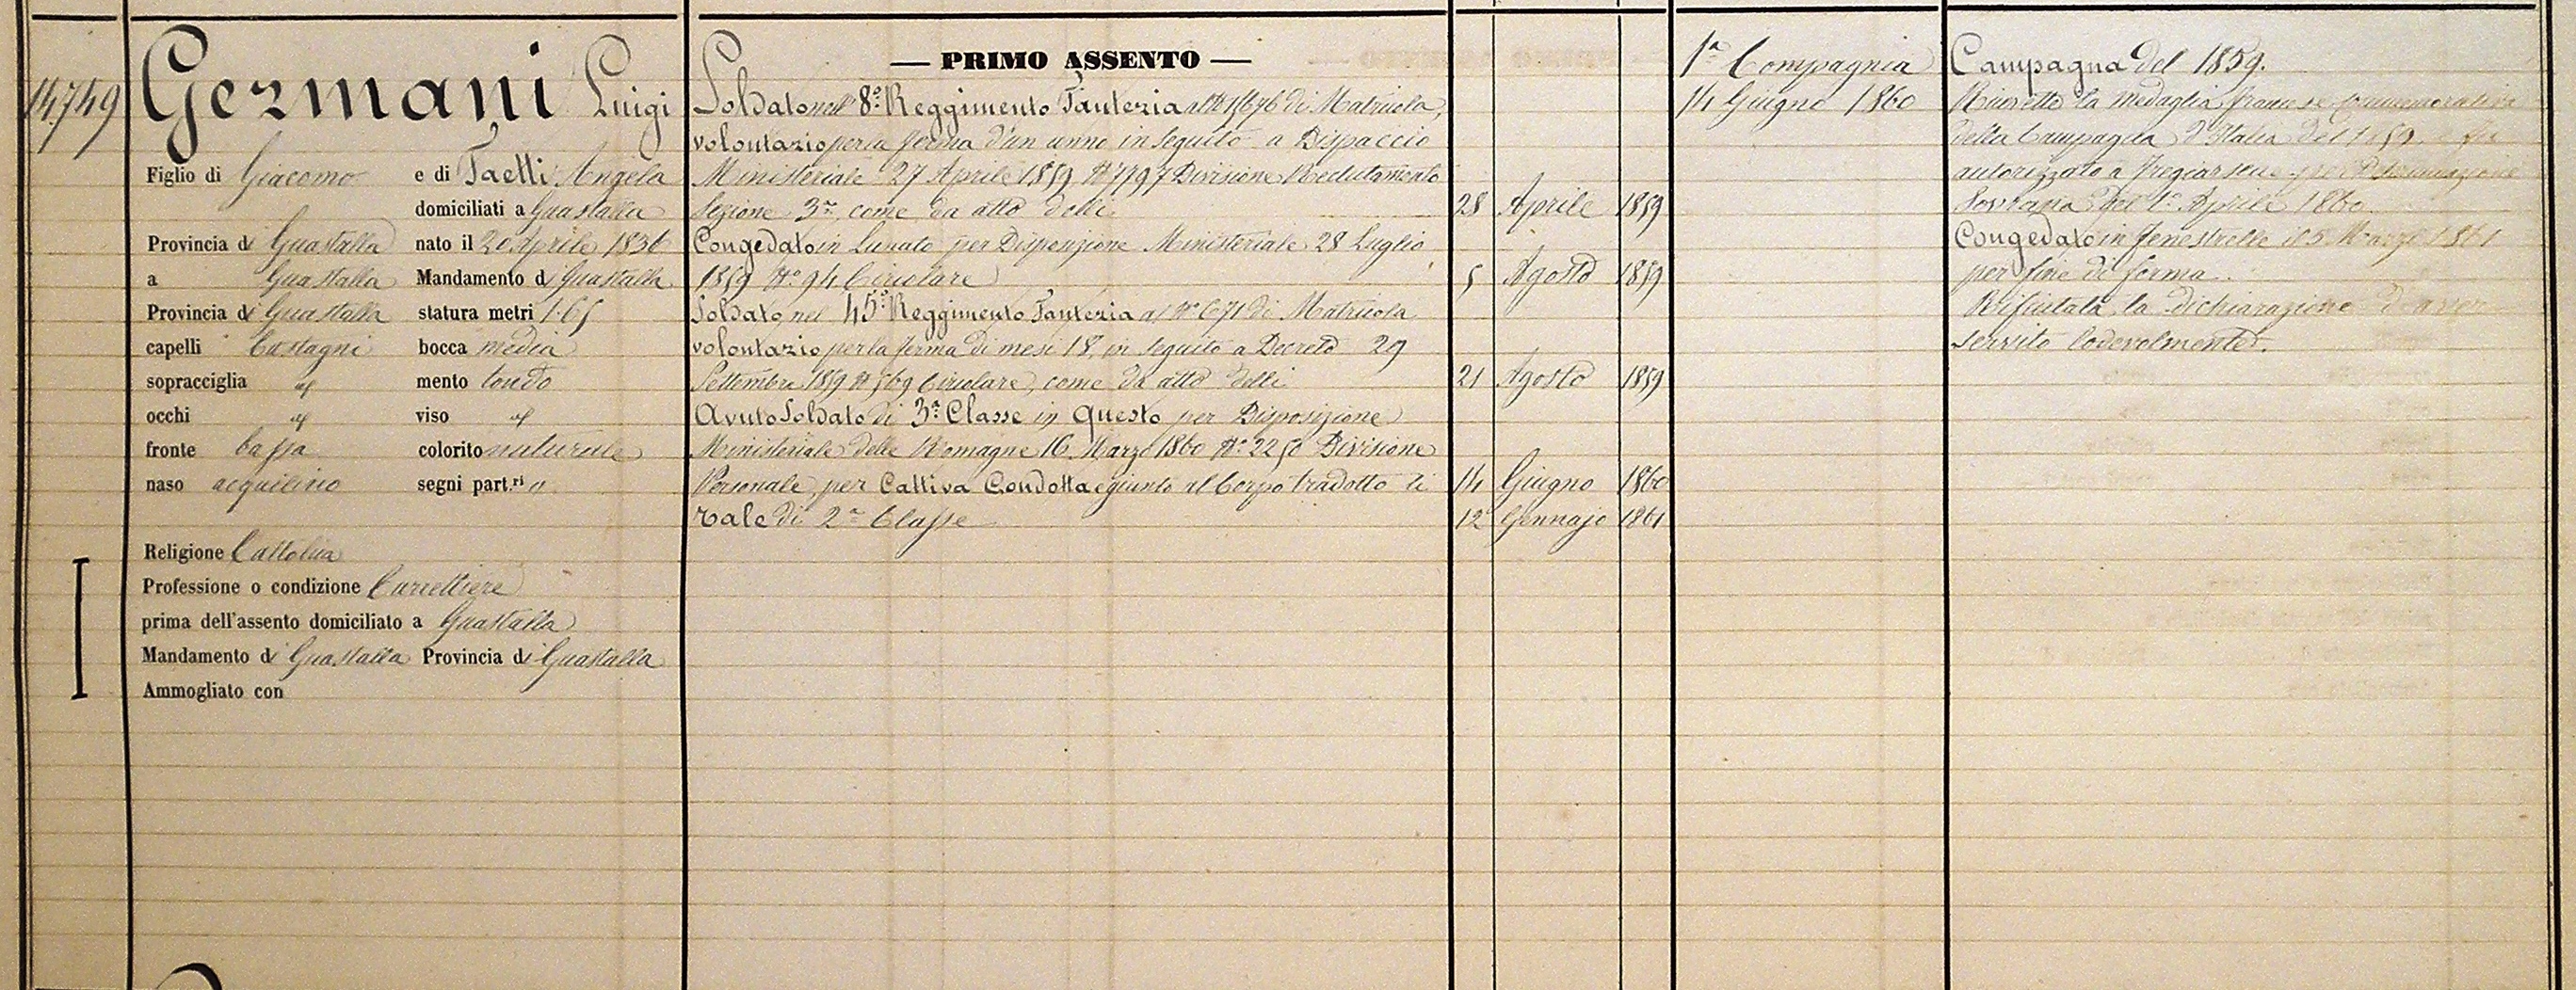 14749
Germani Luigi
Figlio di Giacomo e di Taetti Angela
domiciliati a Guastalla
Provincia di Guastalla nato il 20 Aprile 1836
a Guastalla Mandamento di Guastalla
Provincia di Guastalla statura metri 1.65
capelli Castagni bocca media
sopracciglia id mento tondo
occhi id viso id
fronte bassa colorito naturale
naso acquilino segni part.ri //
Religione Cattolica
Professione o condizione Carrettiere
prima dell'assento domiciliato a Guastalla
Mandamento di Guastalla Provincia di Guastalla
Ammogliato con
— PRIMO ASSENTO —
Soldato nell' 8° Reggimento Fanteria al N° di Matricola,
volontario per la ferma d'un anno in seguito a Dispaccio
Ministeriale 27 Aprile 1859 N° 7797 Divisione Reclutamento
Sezione 3ª, come da atto delli 28 Aprile 1859
Congedato in Lunato per Disposizione Ministeriale 28 Luglio
1859 N° 94 Circolare 5 Agosto 1859
Soldato nel 45° Reggimento Fanteria al N° 671 di Matricola
volontario per la ferma di mesi 18, in seguito a Decreto 29
Settembre 1859 N° 569 Circolare, come da atto delli 21 Agosto 1859
Avuto Soldato di 3ª Classe in questo per Disposizione
Ministeriale delle Romagne 16 Marzo 1860 N° 2250 Divisione
Personale, per Cattiva Condotta e giunto al Corpo tradotto li 14 Giugno 1860
Tale di 2ª Classe 12 Gennajo 1861
1ª Compagnia
14 Giugno 1860
Campagna del 1859.
la Medaglia francese commemorativa
della Campagna d'Italia del 1859 e fu
autorizzato a fregiarsene per Determinazione
Sovrana del 1° Aprile 1860.
Congedato in Fenestrelle il 5 Marzo 1861
per fine di ferma.
Rifiutata la dichiarazione d'aver
servito lodevolmente.